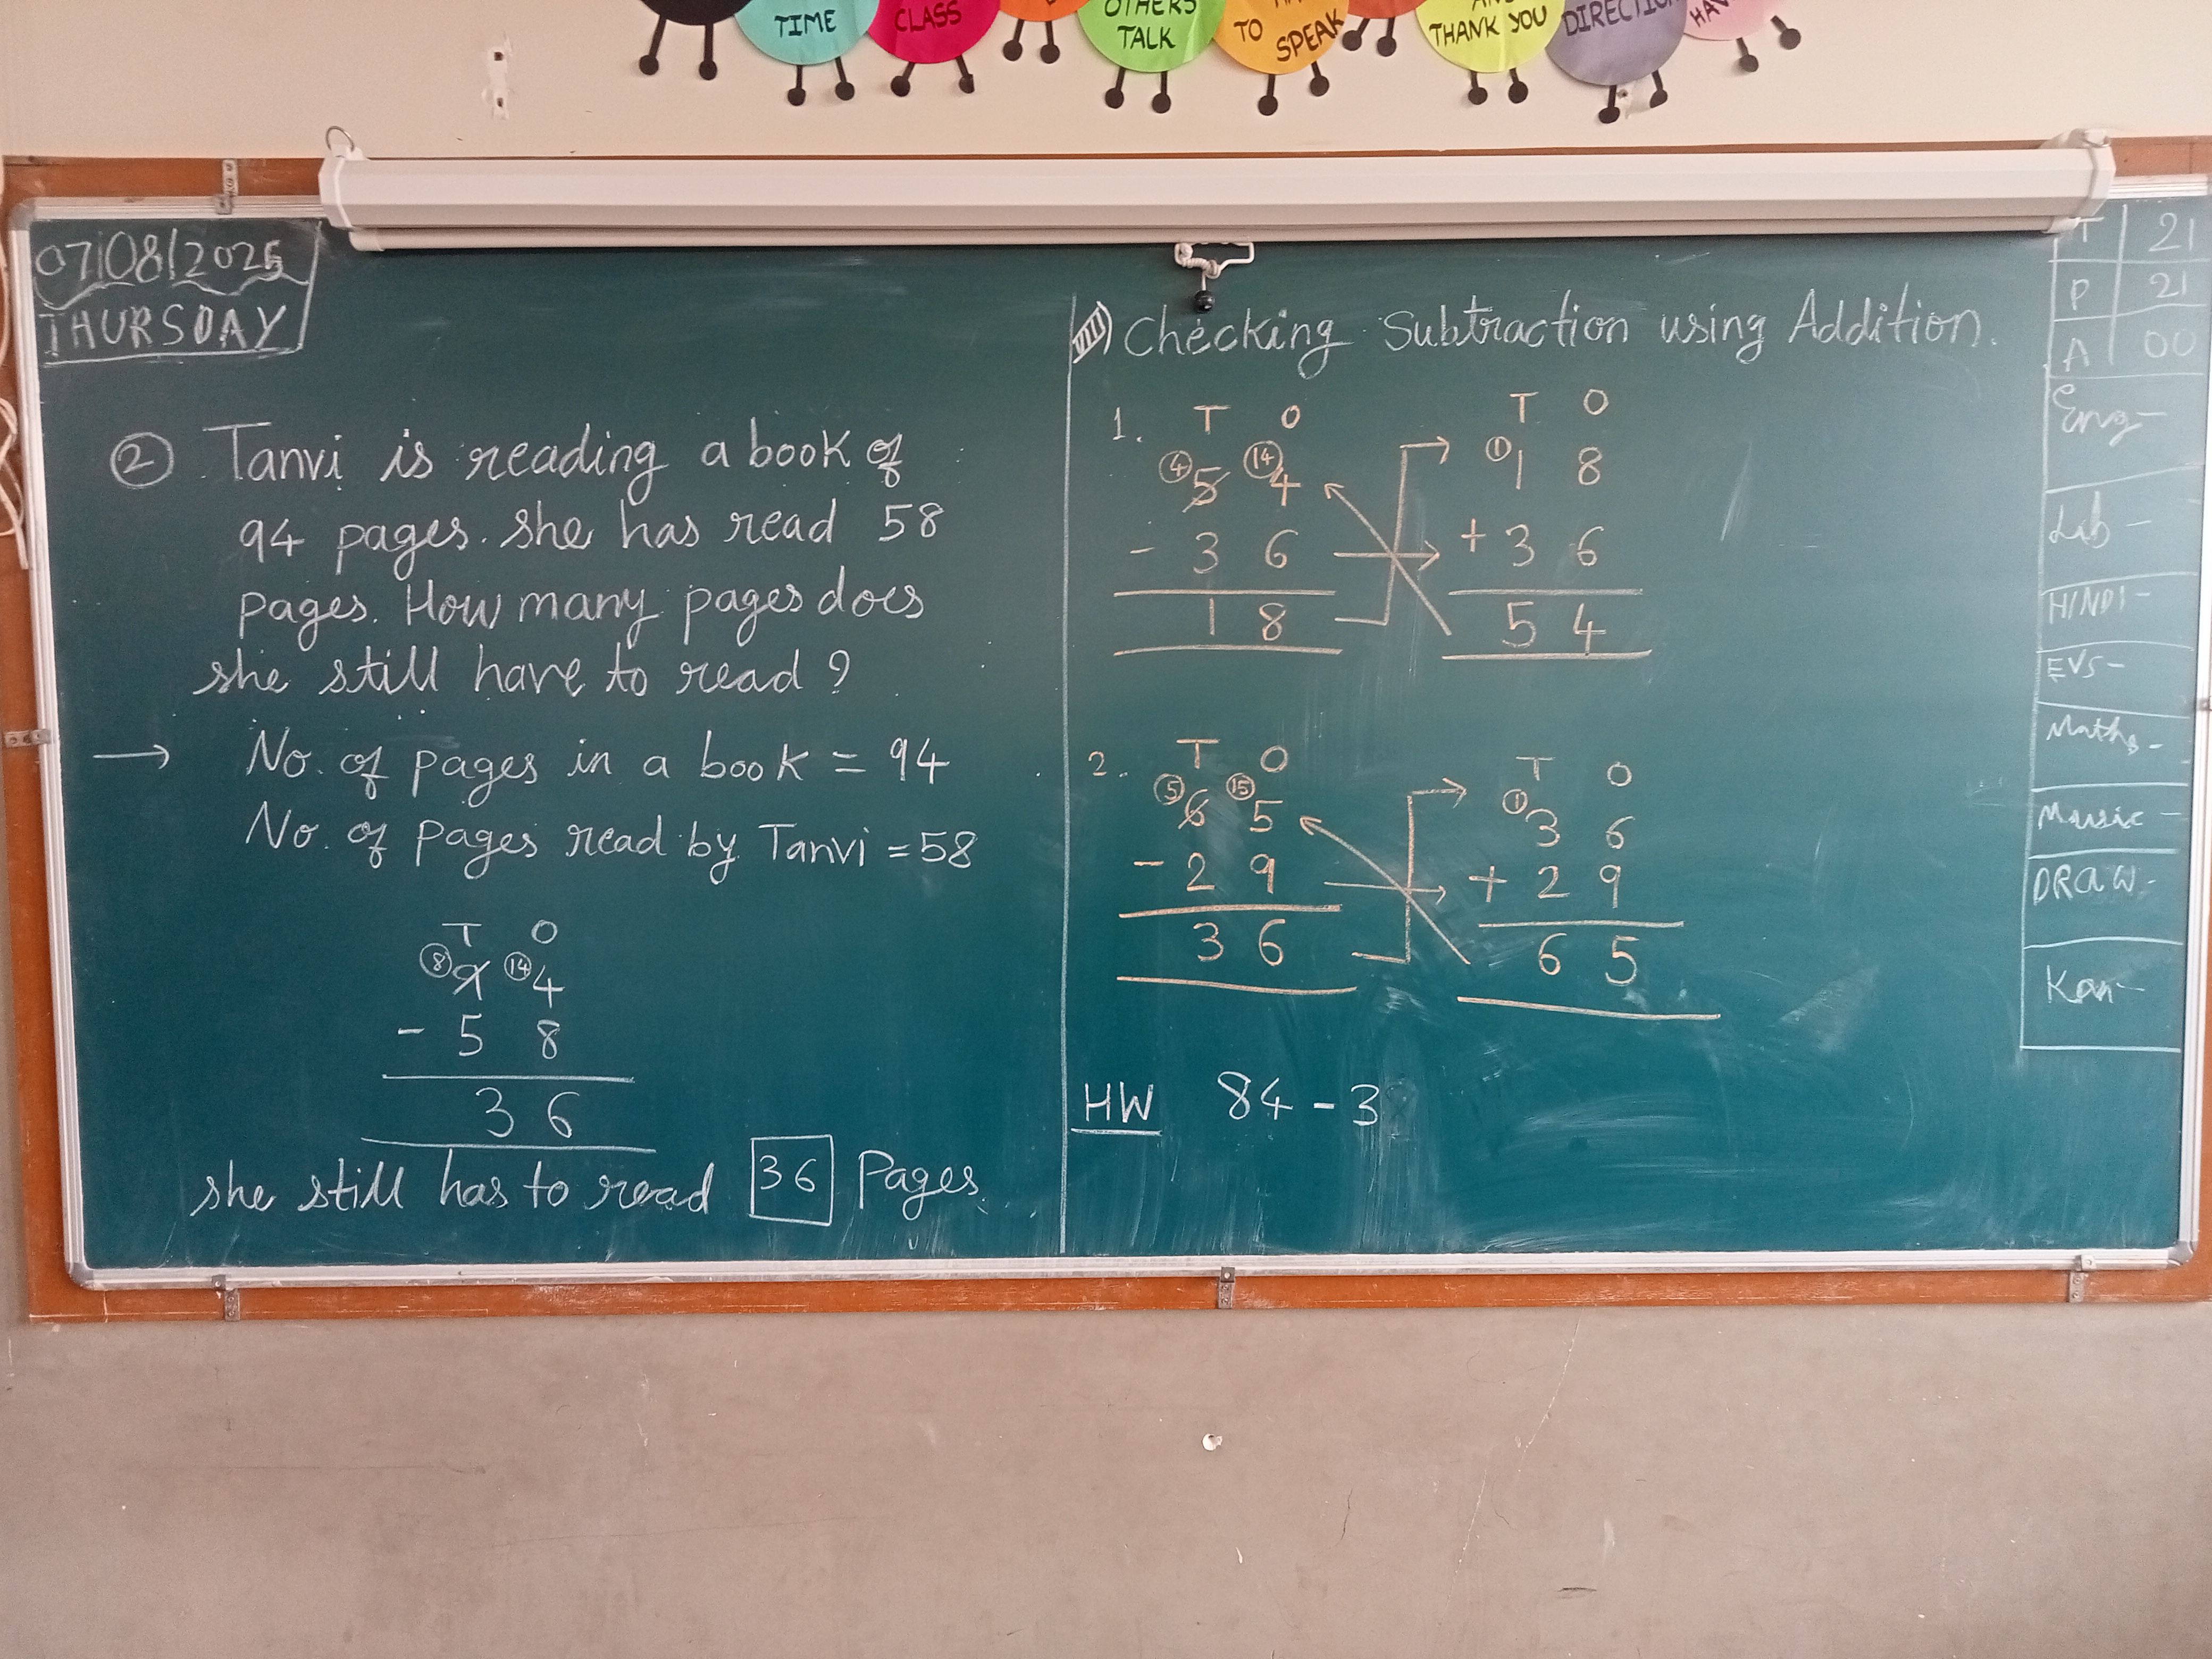 TIME
CLASS
OTHERS
TALK
TO
SPEAK
THANK YOU
07/08/2025
THURSDAY
② Tanvi is reading a book of
94 pages. She has read 58
pages. How many pages does
she still have to read?
→ No. of pages in a book = 94
No. of pages read by Tanvi = 58
T O
⑧9 ⑭4
- 5 8
3 6
she still has to read 36 Pages.
VIII) Checking Subtraction using Addition.
1. T O
④5 ⑭4
- 3 6
1 8
T O
①1 8
+ 3 6
5 4
2. T O
⑤6 ⑮5
- 2 9
3 6
T O
①3 6
+ 2 9
6 5
HW 84 - 3
T 21
P 21
A 00
Eng-
Lib-
HINDI-
EVS-
Maths-
Music-
DRAW-
Kan-